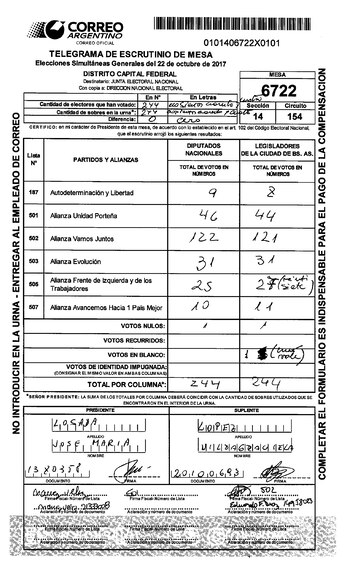 CORREO
ARGENTINO
CORREO OFICIAL
0101406722X0101
TELEGRAMA DE ESCRUTINIO DE MESA
Elecciones Simultáneas Generales del 22 de octubre de 2017
DISTRITO CAPITAL FEDERAL
Destinatario: JUNTA ELECTORAL NACIONAL
Con copia a: DIRECCION NACIONAL ELECTORAL
MESA
6722
En N° En Letras Sección Circuito
Cantidad de electores que han votado: 244
Cantidad de sobres en la urna*: 244 14 154
Diferencia: 0 Cero
CERTIFICO: en mi carácter de Presidente de esta mesa, de acuerdo con lo establecido en el art. 102 del Código Electoral Nacional,
que el escrutinio arrojó los siguientes resultados:
Lista N° PARTIDOS Y ALIANZAS DIPUTADOS NACIONALES LEGISLADORES DE LA CIUDAD DE BS. AS.
TOTAL DE VOTOS EN NÚMEROS TOTAL DE VOTOS EN NÚMEROS
187 Autodeterminación y Libertad 9 8
501 Alianza Unidad Porteña 46 44
502 Alianza Vamos Juntos 122 121
503 Alianza Evolución 31 31
505 Alianza Frente de Izquierda y de los Trabajadores 25 27 (veinti siete)
507 Alianza Avancemos Hacia 1 País Mejor 10 11
VOTOS NULOS: 1 1
VOTOS RECURRIDOS:
VOTOS EN BLANCO: 1
VOTOS DE IDENTIDAD IMPUGNADA:
(CONSIGNAR EL MISMO VALOR EN AMBAS COLUMNAS)
TOTAL POR COLUMNA*: 244 244
*SEÑOR PRESIDENTE: LA SUMA DE LOS TOTALES POR COLUMNA DEBERÁ COINCIDIR CON LA CANTIDAD DE SOBRES UTILIZADOS QUE SE
ENCONTRARON EN EL INTERIOR DE LA URNA.
PRESIDENTE SUPLENTE
LOSADA LOPEZ
APELLIDO APELLIDO
JOSE MARIA MILAGROS
NOMBRE NOMBRE
DOCUMENTO FIRMA DOCUMENTO FIRMA
502
Firma Fiscal/ Número de Lista Firma Fiscal/ Número de Lista Firma Fiscal/ Número de Lista
Aclaración y número de documento Aclaración y número de documento Aclaración y número de documento
Firma Fiscal/ Número de Lista Firma Fiscal/ Número de Lista Firma Fiscal/ Número de Lista
Aclaración y número de documento Aclaración y número de documento Aclaración y número de documento
NO INTRODUCIR EN LA URNA - ENTREGAR AL EMPLEADO DE CORREO
COMPLETAR EL FORMULARIO ES INDISPENSABLE PARA EL PAGO DE LA COMPENSACION